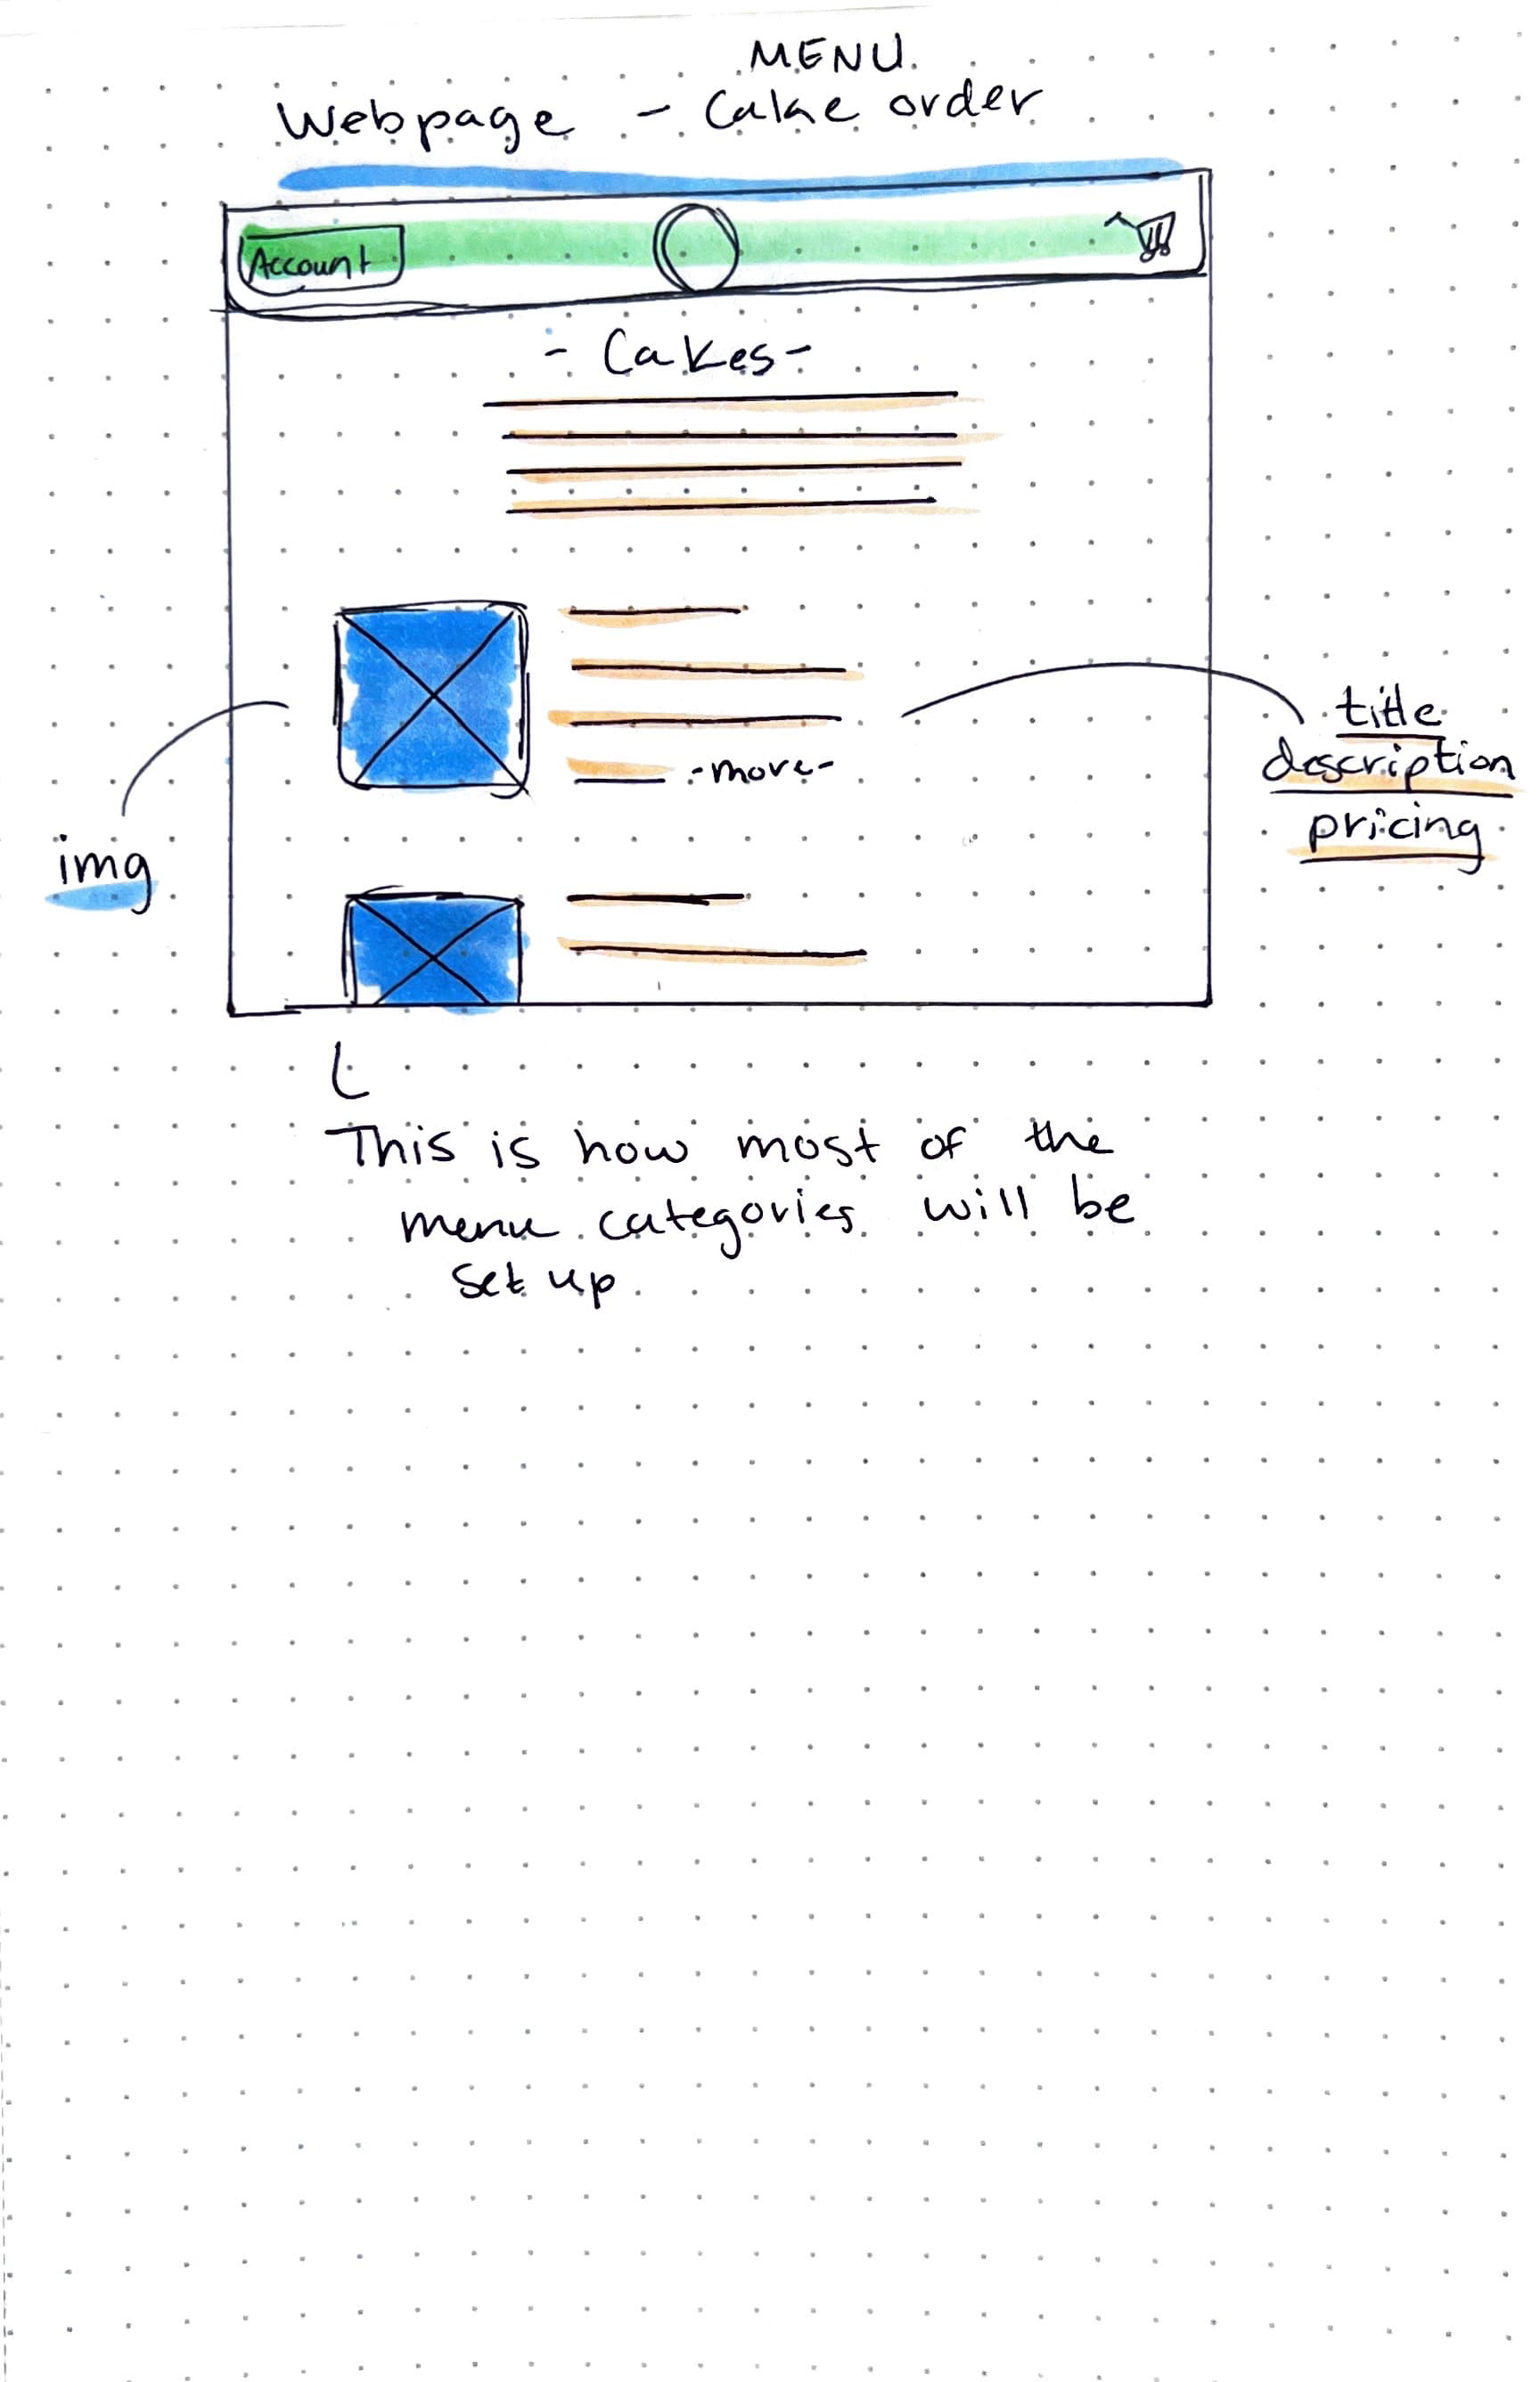 MENU
Webpage - Cake order
Account
- Cakes -
-more-
title
description
pricing
img
This is how most of the
menu categories will be
set up